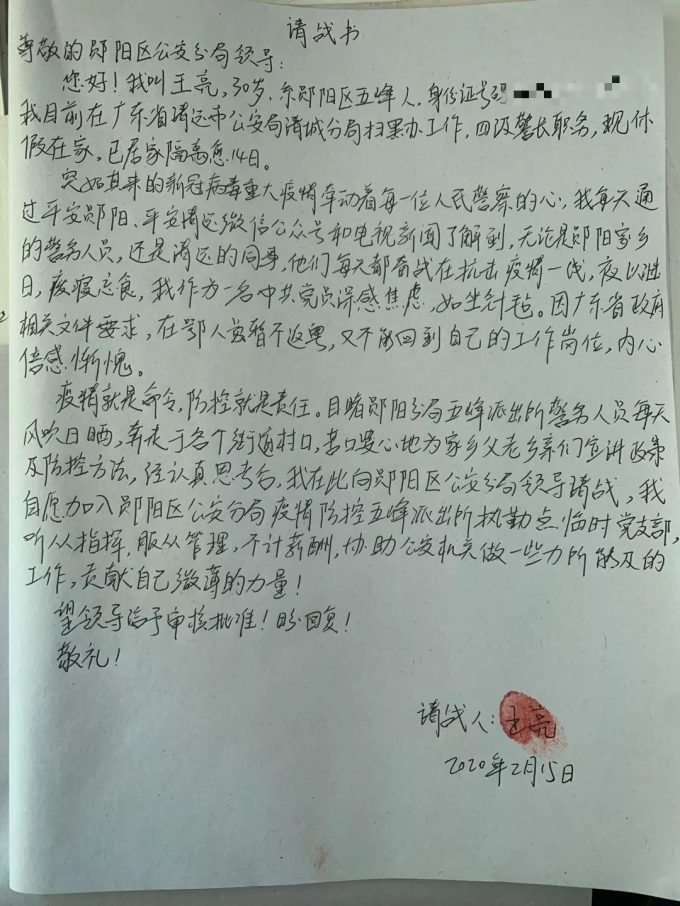 请战书
尊敬的郧阳区公安分局领导：
您好！我叫王亮，30岁，系郧阳区五峰人，身份证号码
我目前在广东省清远市公安局清城分局扫黑办工作，四级警长职务，现休
假在家，已居家隔离愈14日。
突如其来的新冠病毒重大疫情牵动着每一位人民警察的心，我每天通
过平安郧阳、平安清远微信公众号和电视新闻了解到，无论是郧阳家乡
的警务人员，还是清远的同事，他们每天都奋战在抗击疫情一线，夜以继
日，废寝忘食，我作为一名中共党员深感焦虑，如坐针毡。因广东省政府
相关文件要求，在鄂人员暂不返粤，又不能回到自己的工作岗位，内心
倍感惭愧。
疫情就是命令，防控就是责任。目睹郧阳分局五峰派出所警务人员每天
风吹日晒，奔走于各个街道村口，苦口婆心地为家乡父老乡亲们宣讲政策
及防控方法，经认真思考后，我在此向郧阳区公安分局领导请战，我
自愿加入郧阳区公安分局疫情防控五峰派出所执勤点临时党支部，
听从指挥，服从管理，不计薪酬，协助公安机关做一些力所能及的
工作，贡献自己微薄的力量！
望领导给予审核批准！盼回复！
敬礼！
请战人：王亮
2020年2月15日